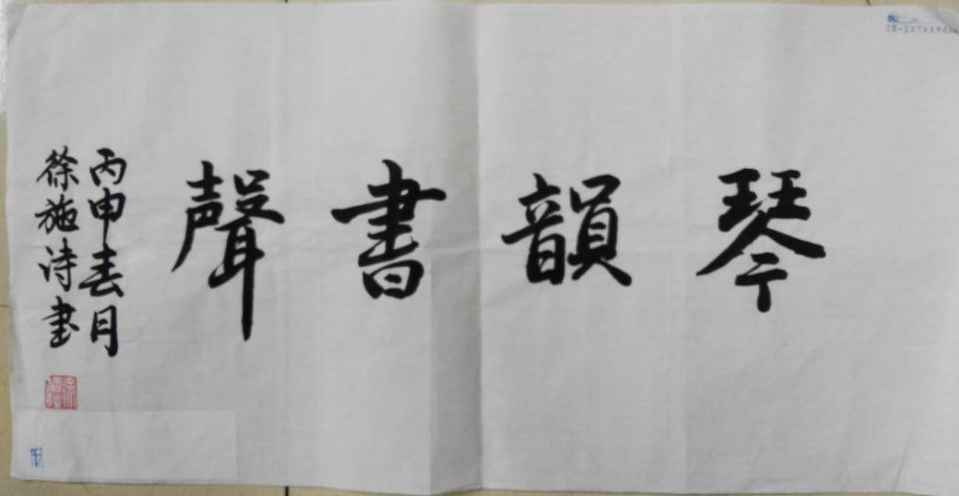 琴韻書聲
丙申春月
徐施诗书